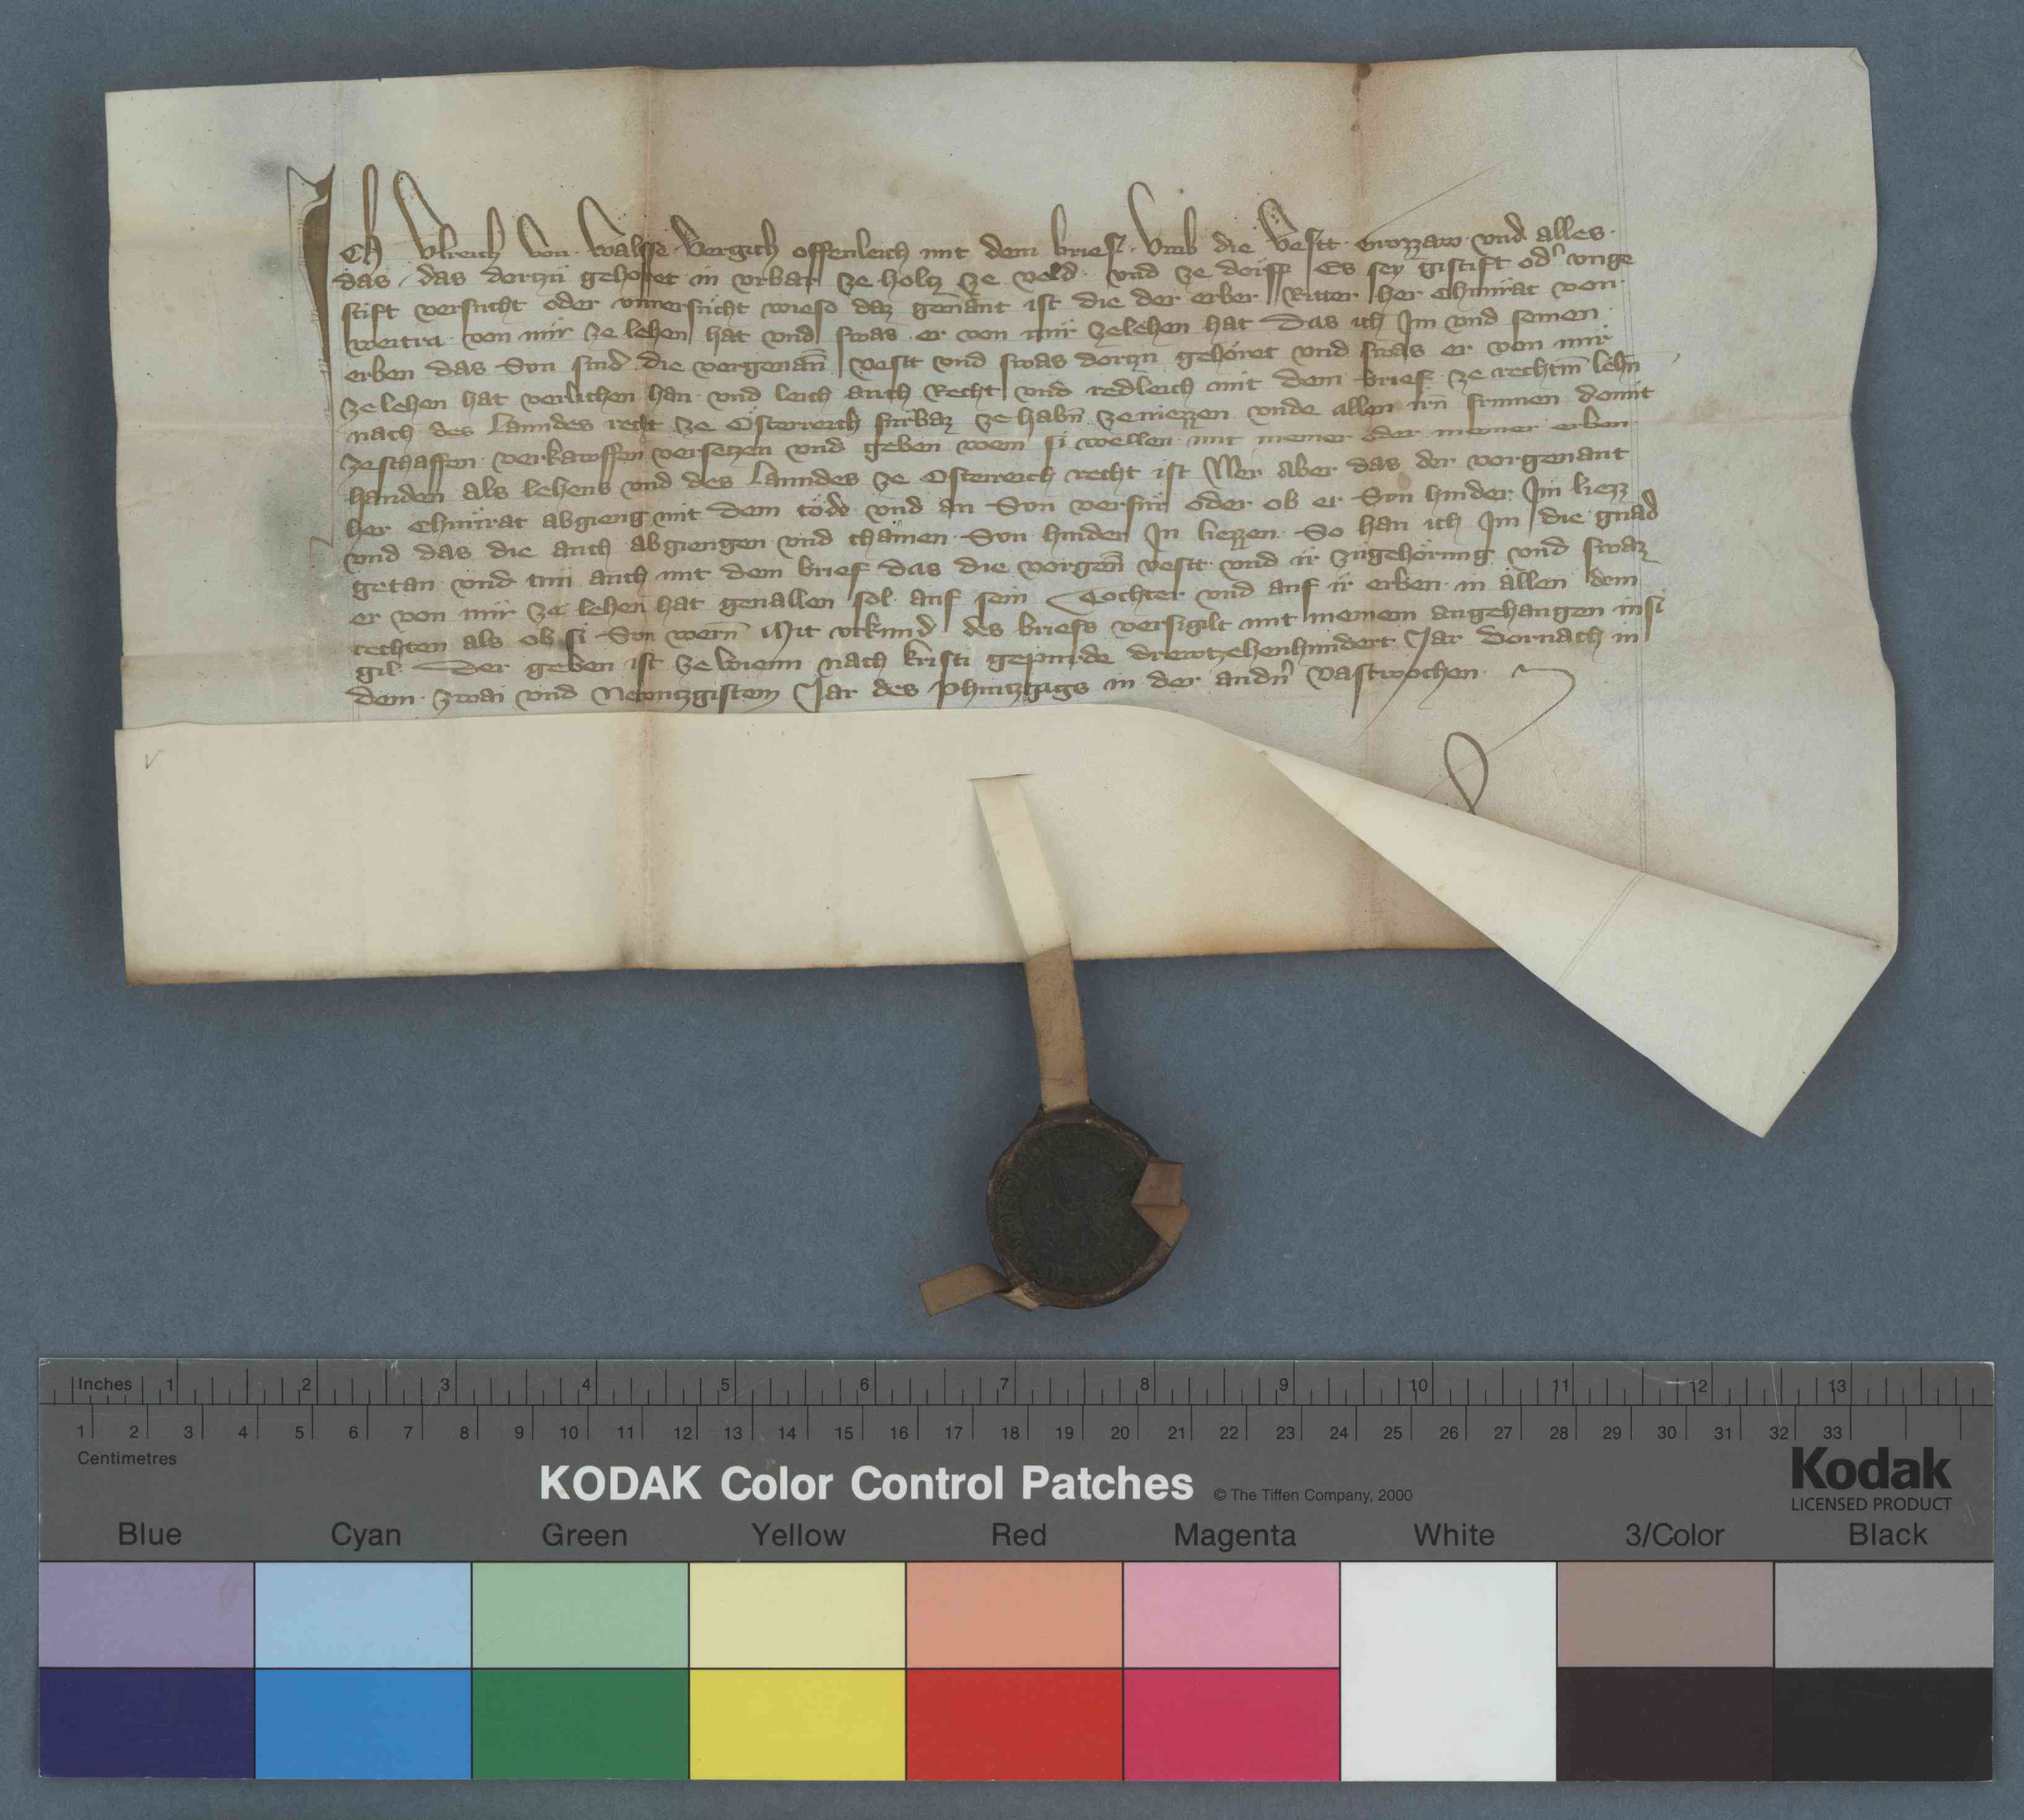 ICh Ulreich von Walsse vergich offenleich mit dem brief. Umb die Vestt Grozzaw und alles.
das, das dorzů gehöret in urbar ze holtz ze veld und ze dörff Es sey gistift od' unge
stift versücht oder unuersücht wieso daz genant ist die der erber Ritter her Chunrat von
weitra von mir ze lehen hat und swas er von mir zelehen hat Das ich Im und seinen
erben das Sun sind die vorgenan̄ vestt und swas dorzu gehöret und swas er von mir
ze lehen hat verlichen han und leich auch Recht und redleich mit dem brief ze rechtm̄ lehn̄
nach des Lanndes recht ze Österreich fürbaz ze habn̄ ze niezzen unde allen irn̄ frumen domit
zeschaffen verkawffen versetzen und geben wem si wellen mit meiner oder meiner erben
handen als lehens und des Lanndes ze Osterreich recht ist Wer aber das der vorgenant
her Chunrat abgieng mit dem töde und an Sun verfür oder ob er Sun hinder Im liezz
und das die auch abgiengen und chainen Sun hinder In liezzen. So han ich Im die gnad
getan und tun auch mit dem brief das die vorgen̄ vestt und ir zügehörung und swaz
er von mir ze lehen hat geuallen sol auf sein Tochter und auf ir erben in allen dem
rechten als ob si Sun wern̄ Mit urkund des briefs versigilt mit meinem angehangen insi
gil. Der geben ist ze wienn nach kristi gepurde drewtzehenhundert Jar dornach in
dem zwai und Newntzgistem Jar des phintztags in der andn' vastwochen
Inches 1 2 3 4 5 6 7 8 9 10 11 12 13
1 2 3 4 5 6 7 8 9 10 11 12 13 14 15 16 17 18 19 20 21 22 23 24 25 26 27 28 29 30 31 32 33
Centimetres
KODAK Color Control Patches © The Tiffen Company, 2000
Kodak
LICENSED PRODUCT
Blue Cyan Green Yellow Red Magenta White 3/Color Black